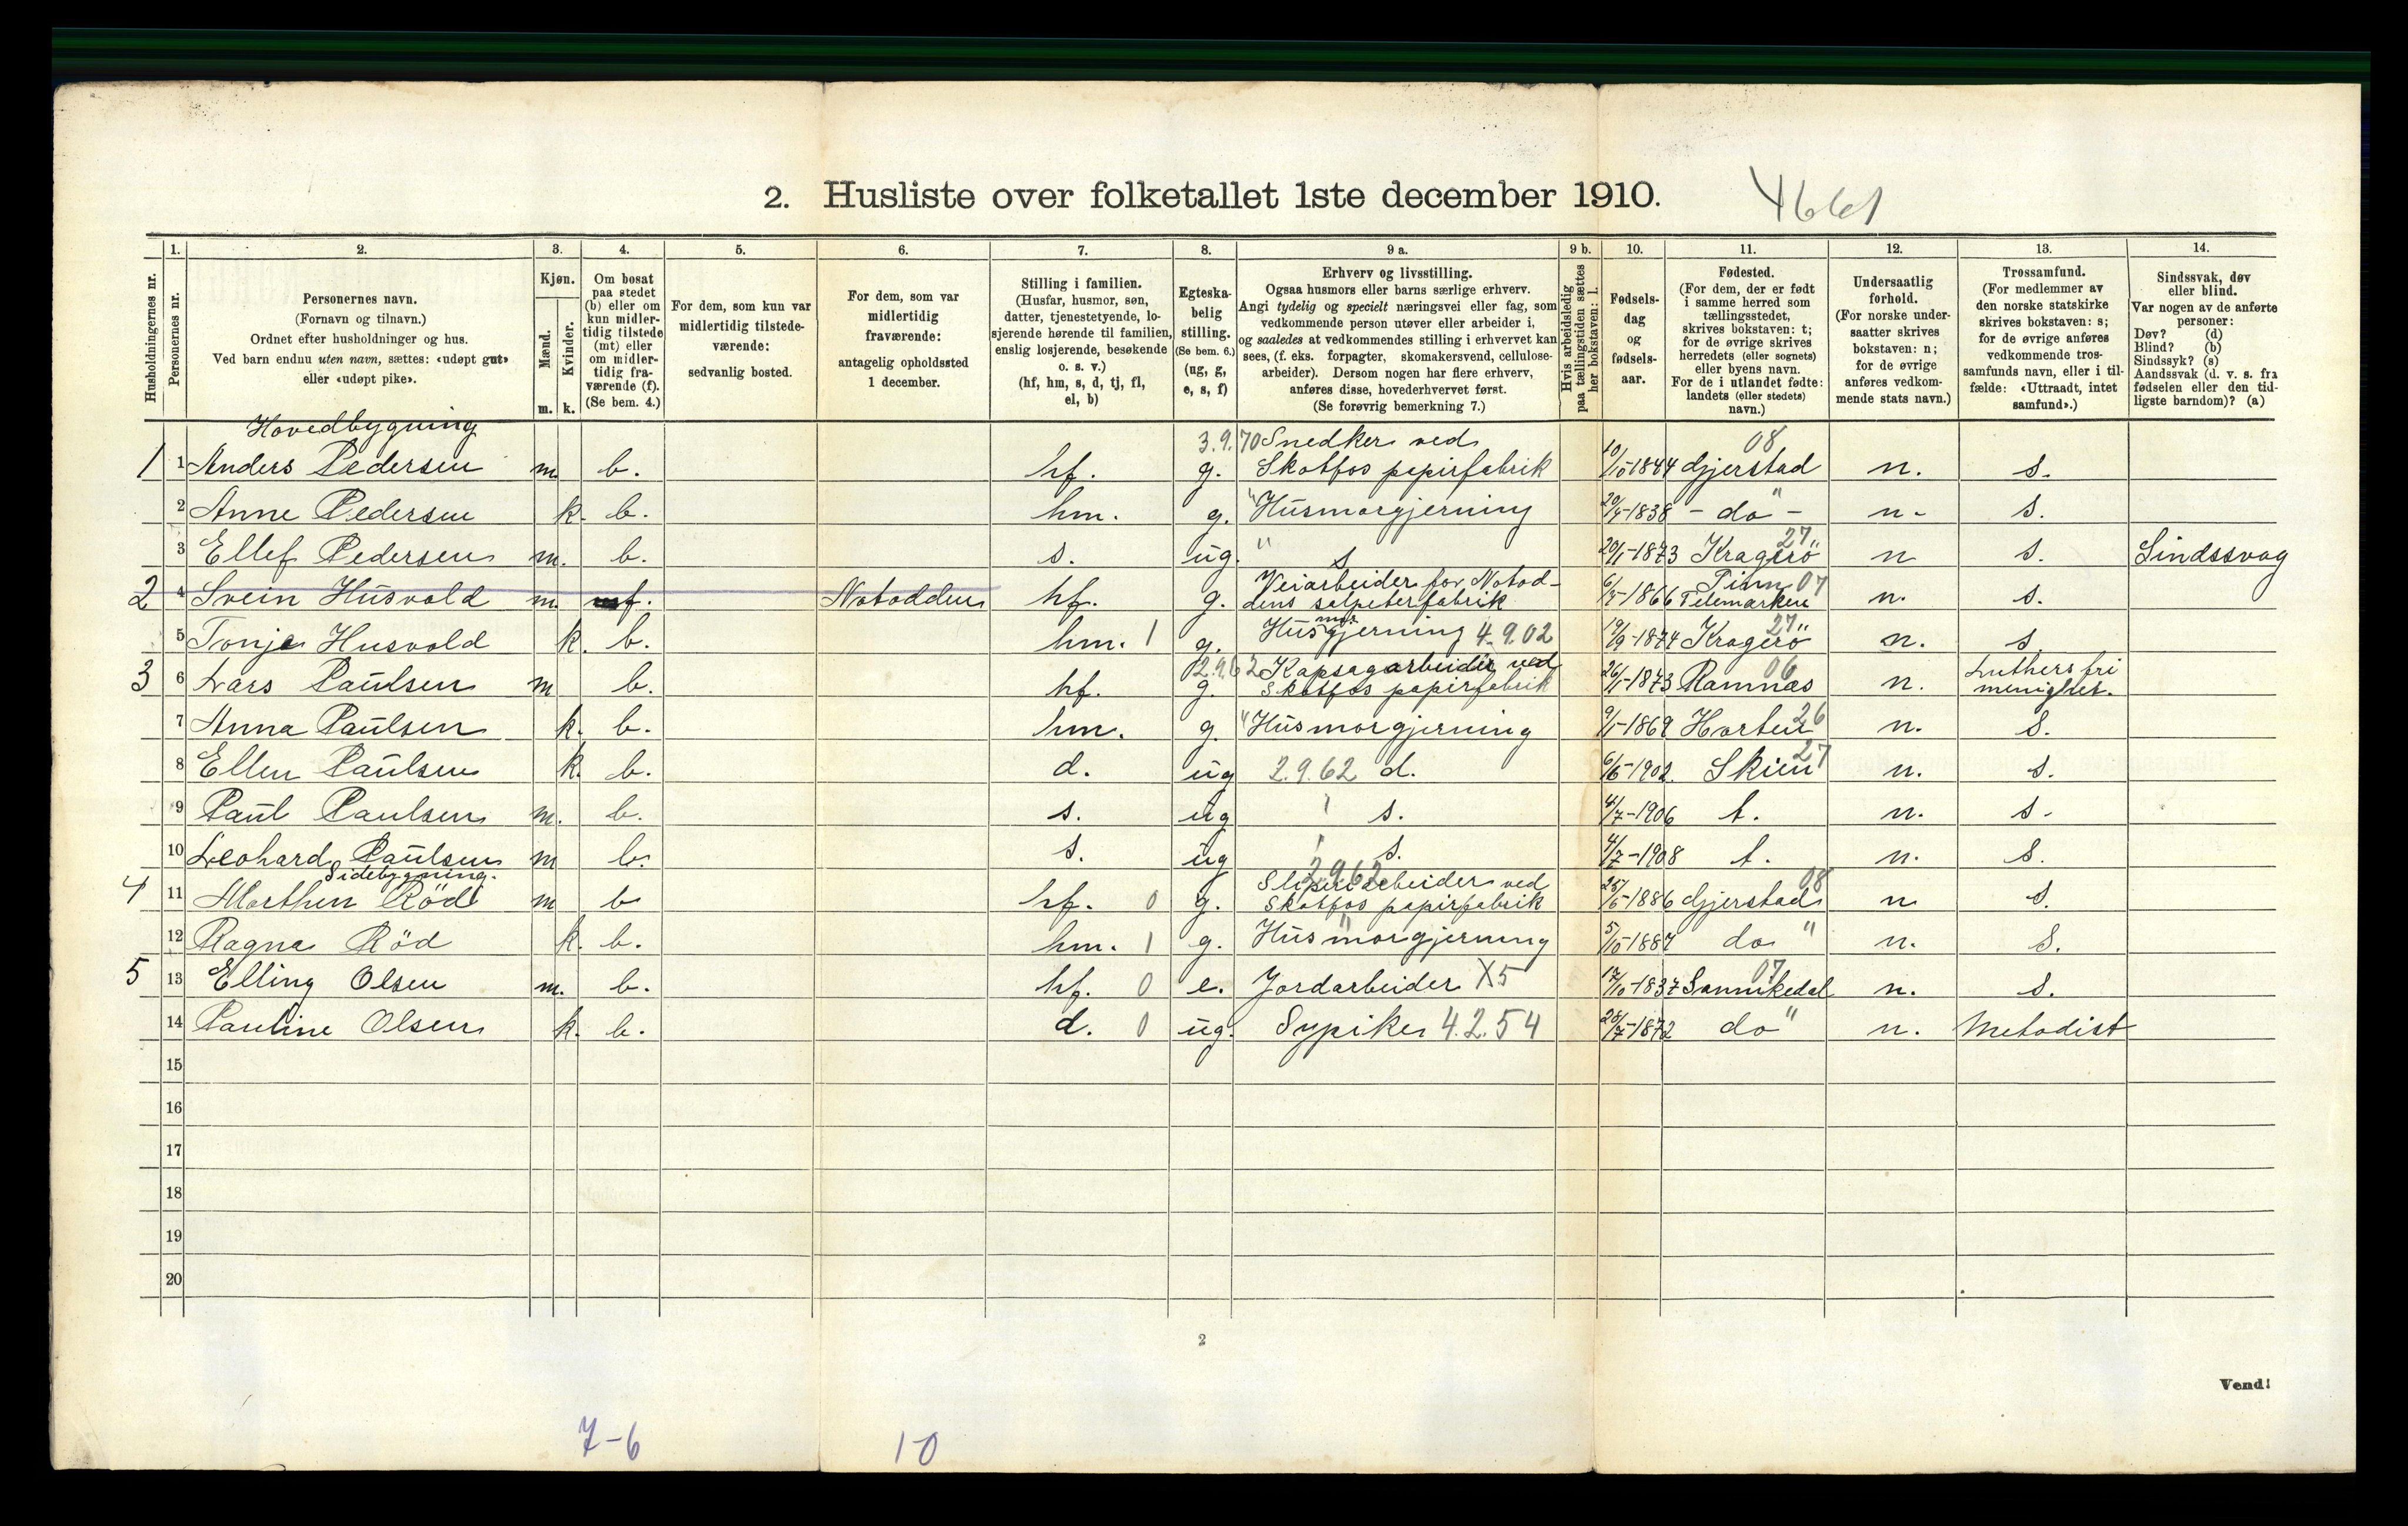 2. Husliste over folketallet 1ste december 1910.
4661
Husholdningernes nr.
1.
Personernes nr.
2.
Personernes navn.
(Fornavn og tilnavn.)
Ordnet efter husholdninger og hus.
Ved barn endnu uten navn, sættes: «udøpt gut»
eller «udøpt pike».
3.
Kjøn.
Mænd.
Kvinder.
m. k.
4.
Om bosat
paa stedet
(b) eller om
kun midler-
tidig tilstede
(mt) eller
om midler-
tidig fra-
værende (f).
(Se bem. 4.)
5.
For dem, som kun var
midlertidig tilstede-
værende:
sedvanlig bosted.
6.
For dem, som var
midlertidig
fraværende:
antagelig opholdssted
1 december.
7.
Stilling i familien.
(Husfar, husmor, søn,
datter, tjenestetyende, lo-
sjerende hørende til familien,
enslig losjerende, besøkende
o. s. v.)
(hf, hm, s, d, tj, fl,
el, b)
8.
Egteska-
belig
stilling.
(Se bem. 6.)
(ug, g,
e, s, f)
9 a.
Erhverv og livsstilling.
Ogsaa husmors eller barns særlige erhverv.
Angi tydelig og specielt næringsvei eller fag, som
vedkommende person utøver eller arbeider i,
og saaledes at vedkommendes stilling i erhvervet kan
sees, (f. eks. forpagter, skomakersvend, cellulose-
arbeider). Dersom nogen har flere erhverv,
anføres disse, hovederhvervet først.
(Se forøvrig bemerkning 7.)
9 b.
Hvis arbeidsledig
paa tællingstiden sættes
her bokstaven: l.
10.
Fødsels-
dag
og
fødsels-
aar.
11.
Fødested.
(For dem, der er født
i samme herred som
tællingsstedet,
skrives bokstaven: t;
for de øvrige skrives
herredets (eller sognets)
eller byens navn.
For de i utlandet fødte:
landets (eller stedets)
navn.)
12.
Undersaatlig
forhold.
(For norske under-
saatter skrives
bokstaven: n;
for de øvrige
anføres vedkom-
mende stats navn.)
13.
Trossamfund.
(For medlemmer av
den norske statskirke
skrives bokstaven: s;
for de øvrige anføres
vedkommende tros-
samfunds navn, eller i til-
fælde: «Uttraadt, intet
samfund».)
14.
Sindssvak, døv
eller blind.
Var nogen av de anførte
personer:
Døv? (d)
Blind? (b)
Sindssyk? (s)
Aandssvak (d. v. s. fra
fødselen eller den tid-
ligste barndom)? (a)
Hovedbygning
3.9.70 Snedker ved 08
1 1 Anders Pedersen m. b. hf. g. Skotfos papirfabrik 10/10-1844 Gjerstad n. s.
2 Anne Pedersen k. b. hm. g. " Husmorgjerning 20/4-1838 - do " - n- s.
3 Ellef Pedersen m. b. s. ug. " s 20/1-1873 Kragerö 27 n s. Sindssvag
Veiarbeider for Notod- Tinn 07
2 4 Svein Husvold m. f. Notodden hf. g. dens salpeterfabrik 6/5-1866 Telemarken n. s.
5 Tonje Husvold k. b. hm. 1 g. Husmorgjerning 4.9.02 19/9-1874 Kragerö 27 n. s.
2.9.62 Kapsagarbeider ved 06 Luthers fri
3 6 Lars Paulsen m b. hf. g. Skotfos papirfabrik 26/1-1873 Ramnæs n. menighet.
7 Anna Paulsen k. b. hm. g. " Husmorgjerning 9/1-1869 Horten 26 n. s.
8 Ellen Paulsen k. b. d. ug 2.9.62 d. 6/6-1902 Skien 27 n. s.
9 Paul Paulsen m. b. s. ug s. 4/7-1906 t. n. s-
10 Leohard Paulsen m b. s. ug s. 4/7-1908 t. n. s.
Sidebygning. 2.9.62 Sliperiarbeider ved 08
4 11 Morthen Röd m b hf. 0 g. Skotfos papirfabrik 25/6-1886 Gjerstad n s.
12 Ragna Röd k. b. hm. 1 g. Husmorgjerning 5/10-1887 do " n. s.
5 13 Elling Olsen m. b. hf. 0 e. Jordarbeider X5 17/10-1837 Sannikedal 07 n. s.
14 Pauline Olsen k. b. d. 0 ug. Sypike 4.2.54 28/7-1872 do " n. Metodist
15
16
17
18
19
20
2
Vend!
7-6
1-0